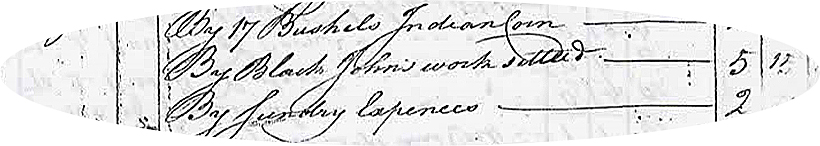 By 17 Bushels Indian Corn
By Black John's work settled 5 12
By Sundry Expences 2